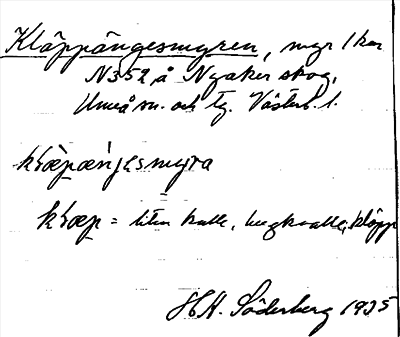 Kläppängesmyren, myr / kar
N352 å Nyåker skog,
Umeå sn. och tg. Västerb. l.
kḷæpæŋesmyra
kḷæp = liten kulle, bergknalle, kläpp
H. Söderberg 1935